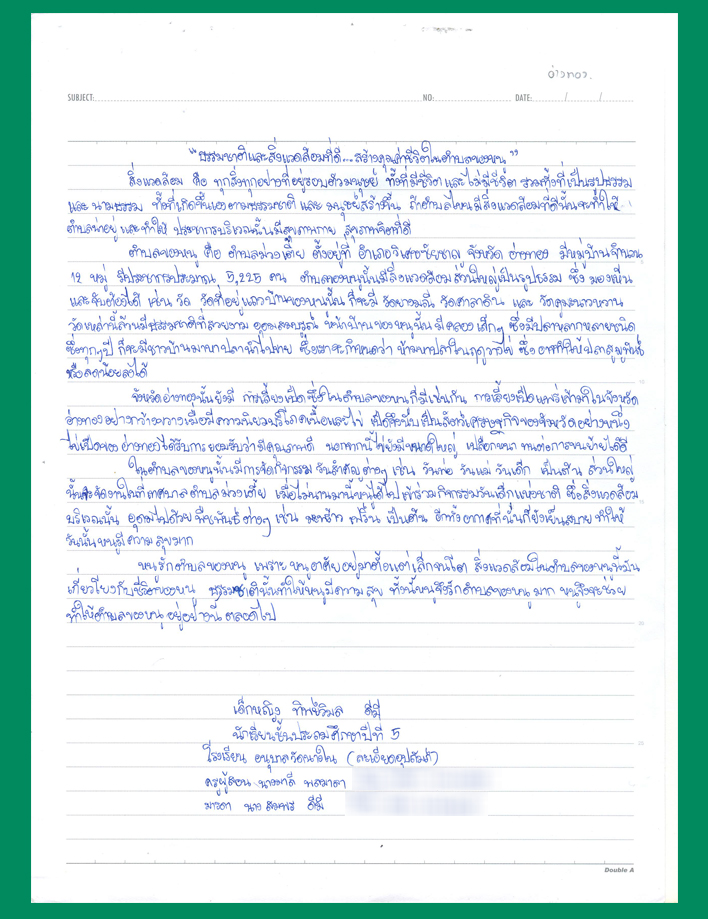 อ่างทอง
SUBJECT: NO: DATE: / /
“ธรรมชาติและสิ่งแวดล้อมที่ดี...สร้างคุณค่าชีวิตในตำบลของหนู”
สิ่งแวดล้อม คือ ทุกสิ่งทุกอย่างที่อยู่รอบตัวมนุษย์ ทั้งที่มีชีวิต และไม่มีชีวิต รวมทั้งที่เป็นรูปธรรม
และ นามธรรม ทั้งที่เกิดขึ้นเองตามธรรมชาติ และ มนุษย์สร้างขึ้น ถ้าตำบลไหนมีสิ่งแวดล้อมที่ดีนั้นจะทำให้
ตำบลน่าอยู่ และทำให้ ประชากรบริเวณนั้นมีสุขภาพกาย สุขภาพจิตที่ดี
ตำบลของหนู คือ ตำบลม่วงเตี้ย ตั้งอยู่ที่ อำเภอวิเศษชัยชาญ จังหวัด อ่างทอง มีหมู่บ้านจำนวน
12 หมู่ มีประชากรประมาณ 5,225 คน ตำบลของหนูนั้นมีสิ่งแวดล้อมส่วนใหญ่เป็นรูปธรรม ซึ่ง มองเห็น
และจับต้องได้ เช่น วัด วัดที่อยู่แถวบ้านของหนูนั้น ก็จะมี วัดยางมณี วัดศาลาดิน และ วัดคุมธนาวหวาน
วัดเหล่านี้ล้วนมีธรรมชาติที่สวยงาม อุดมสมบูรณ์ หน้าบ้านของหนูนั้น มีคลอง เล็กๆ ซึ่งมีปลาหลากหลายชนิด
ซึ่งทุกๆปี ก็จะมีชาวบ้านมาหาปลานำไปขาย ซึ่งเราจะกำหนดว่า ห้ามหาปลาในฤดูวางไข่ ซึ่ง อาจทำให้ปลาสูญพันธุ์
หรือลดน้อยลงได้
จังหวัดอ่างทองนั้นยังมี การเลี้ยงเป็ด ซึ่งในตำบลของหนูก็มีเช่นกัน การเลี้ยงเป็ดแพร่หลายในจังหวัด
อ่างทองอย่างกว้างขวางเมื่อมีความนิยมบริโภคเนื้อและไข่ เป็ดจึงนับเป็นสัตว์เศรษฐกิจของจังหวัดอย่างหนึ่ง
ไข่เป็ดของ อ่างทองได้รับการยอมรับว่ามีคุณภาพดี นอกจากนี้ไข่ยังมีขนาดใหญ่ เปลือกหนา ทนต่อการขนย้ายได้ดี
ในตำบลของหนูนั้นมีการจัดกิจกรรม วันสำคัญต่างๆ เช่น วันพ่อ วันแม่ วันเด็ก เป็นต้น ส่วนใหญ่
นั้นจะจัดงานในที่เทศบาลตำบลม่วงเตี้ย เมื่อไม่นานมานี้หนูได้ไปเข้าร่วมกิจกรรมวันเด็กแห่งชาติ ซึ่งสิ่งแวดล้อม
บริเวณนั้น อุดมไปด้วย พืชพันธ์ต่างๆ เช่น มะพร้าว เฟริ์น เป็นต้น อีกทั้งอากาศที่นั้นก็ยังเย็นสบาย ทำให้
วันนั้นหนูมี ความสุขมาก
หนูรักตำบลของหนู เพราะ หนูอาศัยอยู่มาตั้งแต่เล็กจนโต สิ่งแวดล้อมในตำบลของหนูนี้มัน
เกี่ยวโยงกับชีวิตของหนู ธรรมชาตินั้นทำให้หนูมีความสุข ทั้งนี้หนูจึงรักตำบลของหนูมาก หนูจึงจะช่วย
ทำให้ตำบลของหนู อยู่อย่างนี้ ตลอดไป
เด็กหญิง ทิพย์วิมล ดีมี
นักเรียนชั้นประถมศึกษาปีที่ 5
โรงเรียน อนุบาลวัดนางใน (ละเอียดอุปถัมภ์)
ครูผู้สอน นางมาลี พลมาลา
มารดา นาง สมพร ดีมี
Double A